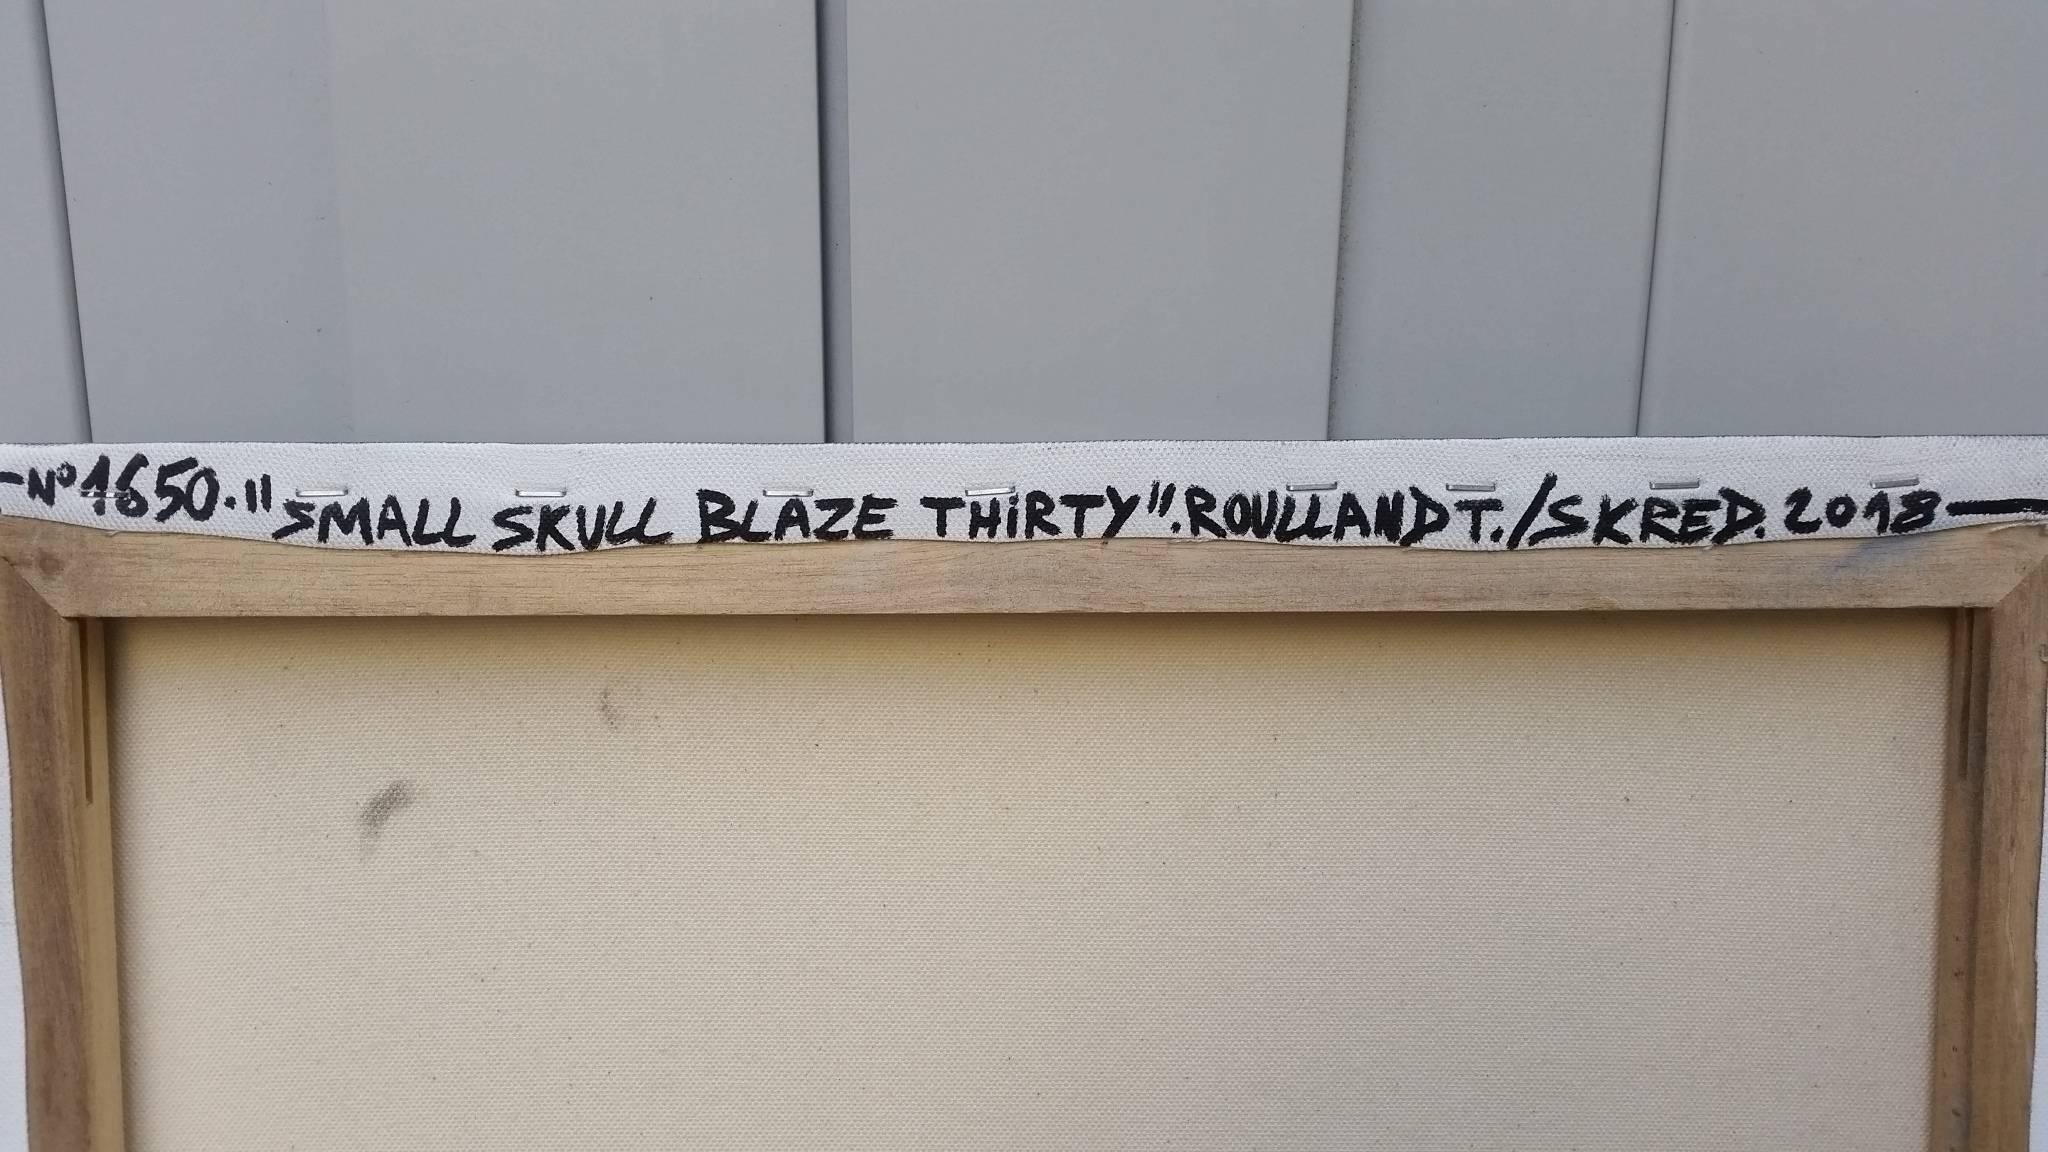 —N° 1650. "SMALL SKULL BLAZE THiRTY". ROULLAND T./SKRED. 2018—